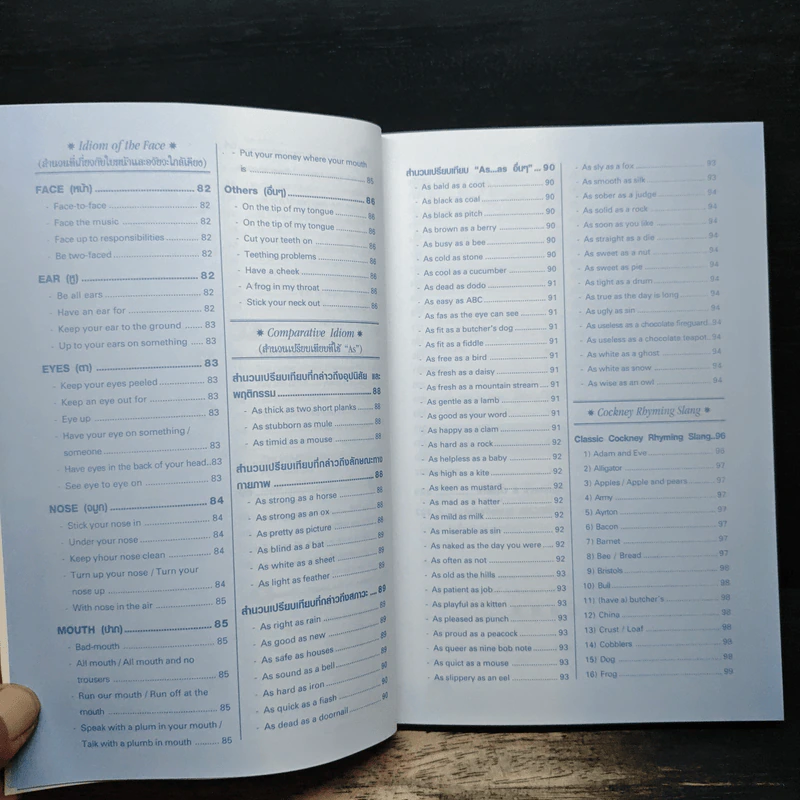 Idiom of the Face
(สำนวนที่เกี่ยวกับใบหน้าและอวัยวะใกล้เคียง)
FACE (หน้า) 82
- Face-to-face 82
- Face the music 82
- Face up to responsibilities 82
- Be two-faced 82
EAR (หู) 82
- Be all ears 82
- Have an ear for 82
- Keep your ear to the ground 83
- Up to your ears on something 83
EYES (ตา) 83
- Keep your eyes peeled 83
- Keep an eye out for 83
- Eye up 83
- Have your eye on something /
someone 83
- Have eyes in the back of your head..83
- See eye to eye on 83
NOSE (จมูก) 84
- Stick your nose in 84
- Under your nose 84
- Keep yhour nose clean 84
- Turn up your nose / Turn your
nose up 84
- With nose in the air 85
MOUTH (ปาก) 85
- Bad-mouth 85
- All mouth / All mouth and no
trousers 85
- Run our mouth / Run off at the
mouth 85
- Speak with a plum in your mouth /
Talk with a plumb in mouth 85
- Put your money where your mouth
is 85
Others (อื่นๆ) 86
- On the tip of my tongue 86
- On the tip of my tongue 86
- Cut your teeth on 86
- Teething problems 86
- Have a cheek 86
- A frog in my throat 86
- Stick your neck out 86
Comparative Idiom
(สำนวนเปรียบเทียบที่ใช้ "As")
สำนวนเปรียบเทียบที่กล่าวถึงอุปนิสัย และ
พฤติกรรม 88
- As thick as two short planks 88
- As stubborn as mule 88
- As timid as a mouse 88
สำนวนเปรียบเทียบที่กล่าวถึงลักษณะทาง
กายภาพ 88
- As strong as a horse 88
- As strong as an ox 88
- As pretty as picture 88
- As blind as a bat 88
- As white as a sheet 88
- As light as feather 88
สำนวนเปรียบเทียบที่กล่าวถึงสภาวะ 89
- As right as rain 89
- As good as new 89
- As safe as houses 89
- As sound as a bell
- As hard as iron 90
- As quick as a flash
- As dead as a doornail 90
สำนวนเปรียบเทียบ "As...as อื่นๆ" ... 90
- As bald as a coot 90
- As black as coal 90
- As black as pitch 90
- As brown as a berry 90
- As busy as a bee 90
- As cold as stone 90
- As cool as a cucumber 90
- As dead as dodo 91
- As easy as ABC 91
- As fas as the eye can see 91
- As fit as a butcher's dog 91
- As fit as a fiddle 91
- As free as a bird 91
- As fresh as a daisy 91
- As fresh as a mountain stream 91
- As gentle as a lamb 91
- As good as your word 91
- As happy as a clam 91
- As hard as a rock 92
- As helpless as a baby 92
- As high as a kite 92
- As keen as mustard 92
- As mad as a hatter 92
- As mild as milk 92
- As miserable as sin 92
- As naked as the day you were 92
- As often as not 92
- As old as the hills 93
- As patient as job 93
- As playful as a kitten 93
- As pleased as punch 93
- As proud as a peacock 93
- As queer as nine bob note 93
- As quict as a mouse 93
- As slippery as an eel 93
- As sly as a fox 93
- As smooth as silk 93
- As sober as a judge 94
- As solid as a rock 94
- As soon as you like 94
- As straight as a die 94
- As sweet as a nut 94
- As sweet as pie 94
- As tight as a drum 94
- As true as the day is long 94
- As ugly as sin 94
- As useless as a chocolate fireguard 94
- As useless as a chocolate teapot 94
- As white as a ghost 94
- As white as snow 94
- As wise as an owl 94
Cockney Rhyming Slang
Classic Cockney Rhyming Slang..96
1) Adam and Eve 96
2) Alligator 97
3) Apples / Apple and pears 97
4) Army 97
5) Ayrton 97
6) Bacon 97
7) Barnet 97
8) Bee / Bread 97
9) Bristols 98
10) Bull 98
11) (have a) butcher's 98
12) China 98
13) Crust / Loaf 98
14) Cobblers 98
15) Dog 98
16) Frog 99